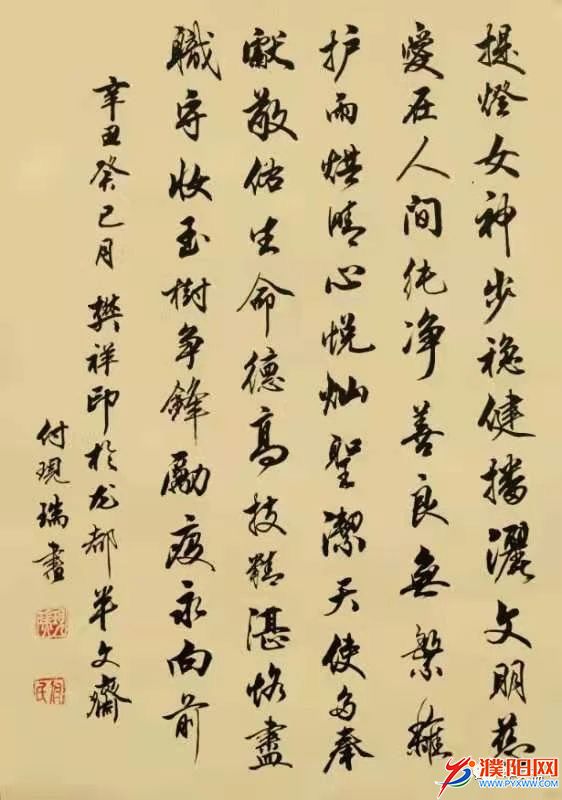 提燈女神步稳健播灑文明慈
愛在人间纯净善良無繁雜
护而烘晴心悦灿聖潔天使多奉
献敬佑生命德高技精湛恪盡
職守妆玉樹争鋒勵疫永向前
辛丑癸巳月樊祥印於龙都半文齋
付现瑞書
濮阳网
WWW.PYXWW.COM